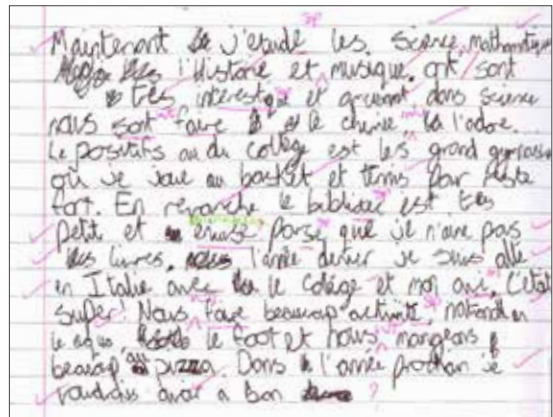 Maintenant j'etudé les science, mathematique
l'Histoire et musique. ont sont
tes interestqué et dans science
nous sont faire le chemie, l'adore.
Le positifs au du collège est les grand gymnase
où je joue au basket et tennis par
fort. En revanche le est tes
petit et parse que je n'aime pas
les livres. l'année denier je suis allé
en Italie avec le college et mon ami. C'étai
super! Nous faire beaucoup activité,
le foot et nous mangeons
beaucop au pizza. Dans l'année prochan je
voudrais avoir a bon